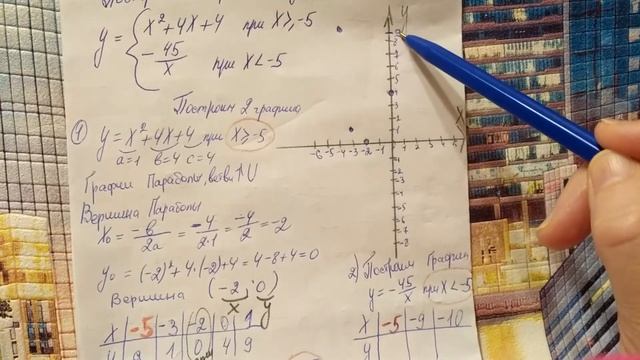 y = { x² + 4x + 4 при x ≥ -5
- 45/x при x < -5
Построим 2 графика
① y = x² + 4x + 4 при x ≥ -5
a=1 b=4 c=4
График Парабола, ветви ↑ U
Вершина Параболы
x₀ = -b/2a = -4/2·1 = -4/2 = -2
y₀ = (-2)² + 4·(-2) + 4 = 4 - 8 + 4 = 0
Вершина (-2; 0)
x y
x -5 -3 -2 0 1
y 9 1 0 4 9
y
x
-6 -5 -4 -3 -2 -1
2) Построим График
y = -45/x при x < -5
x -5 -9 -10
y